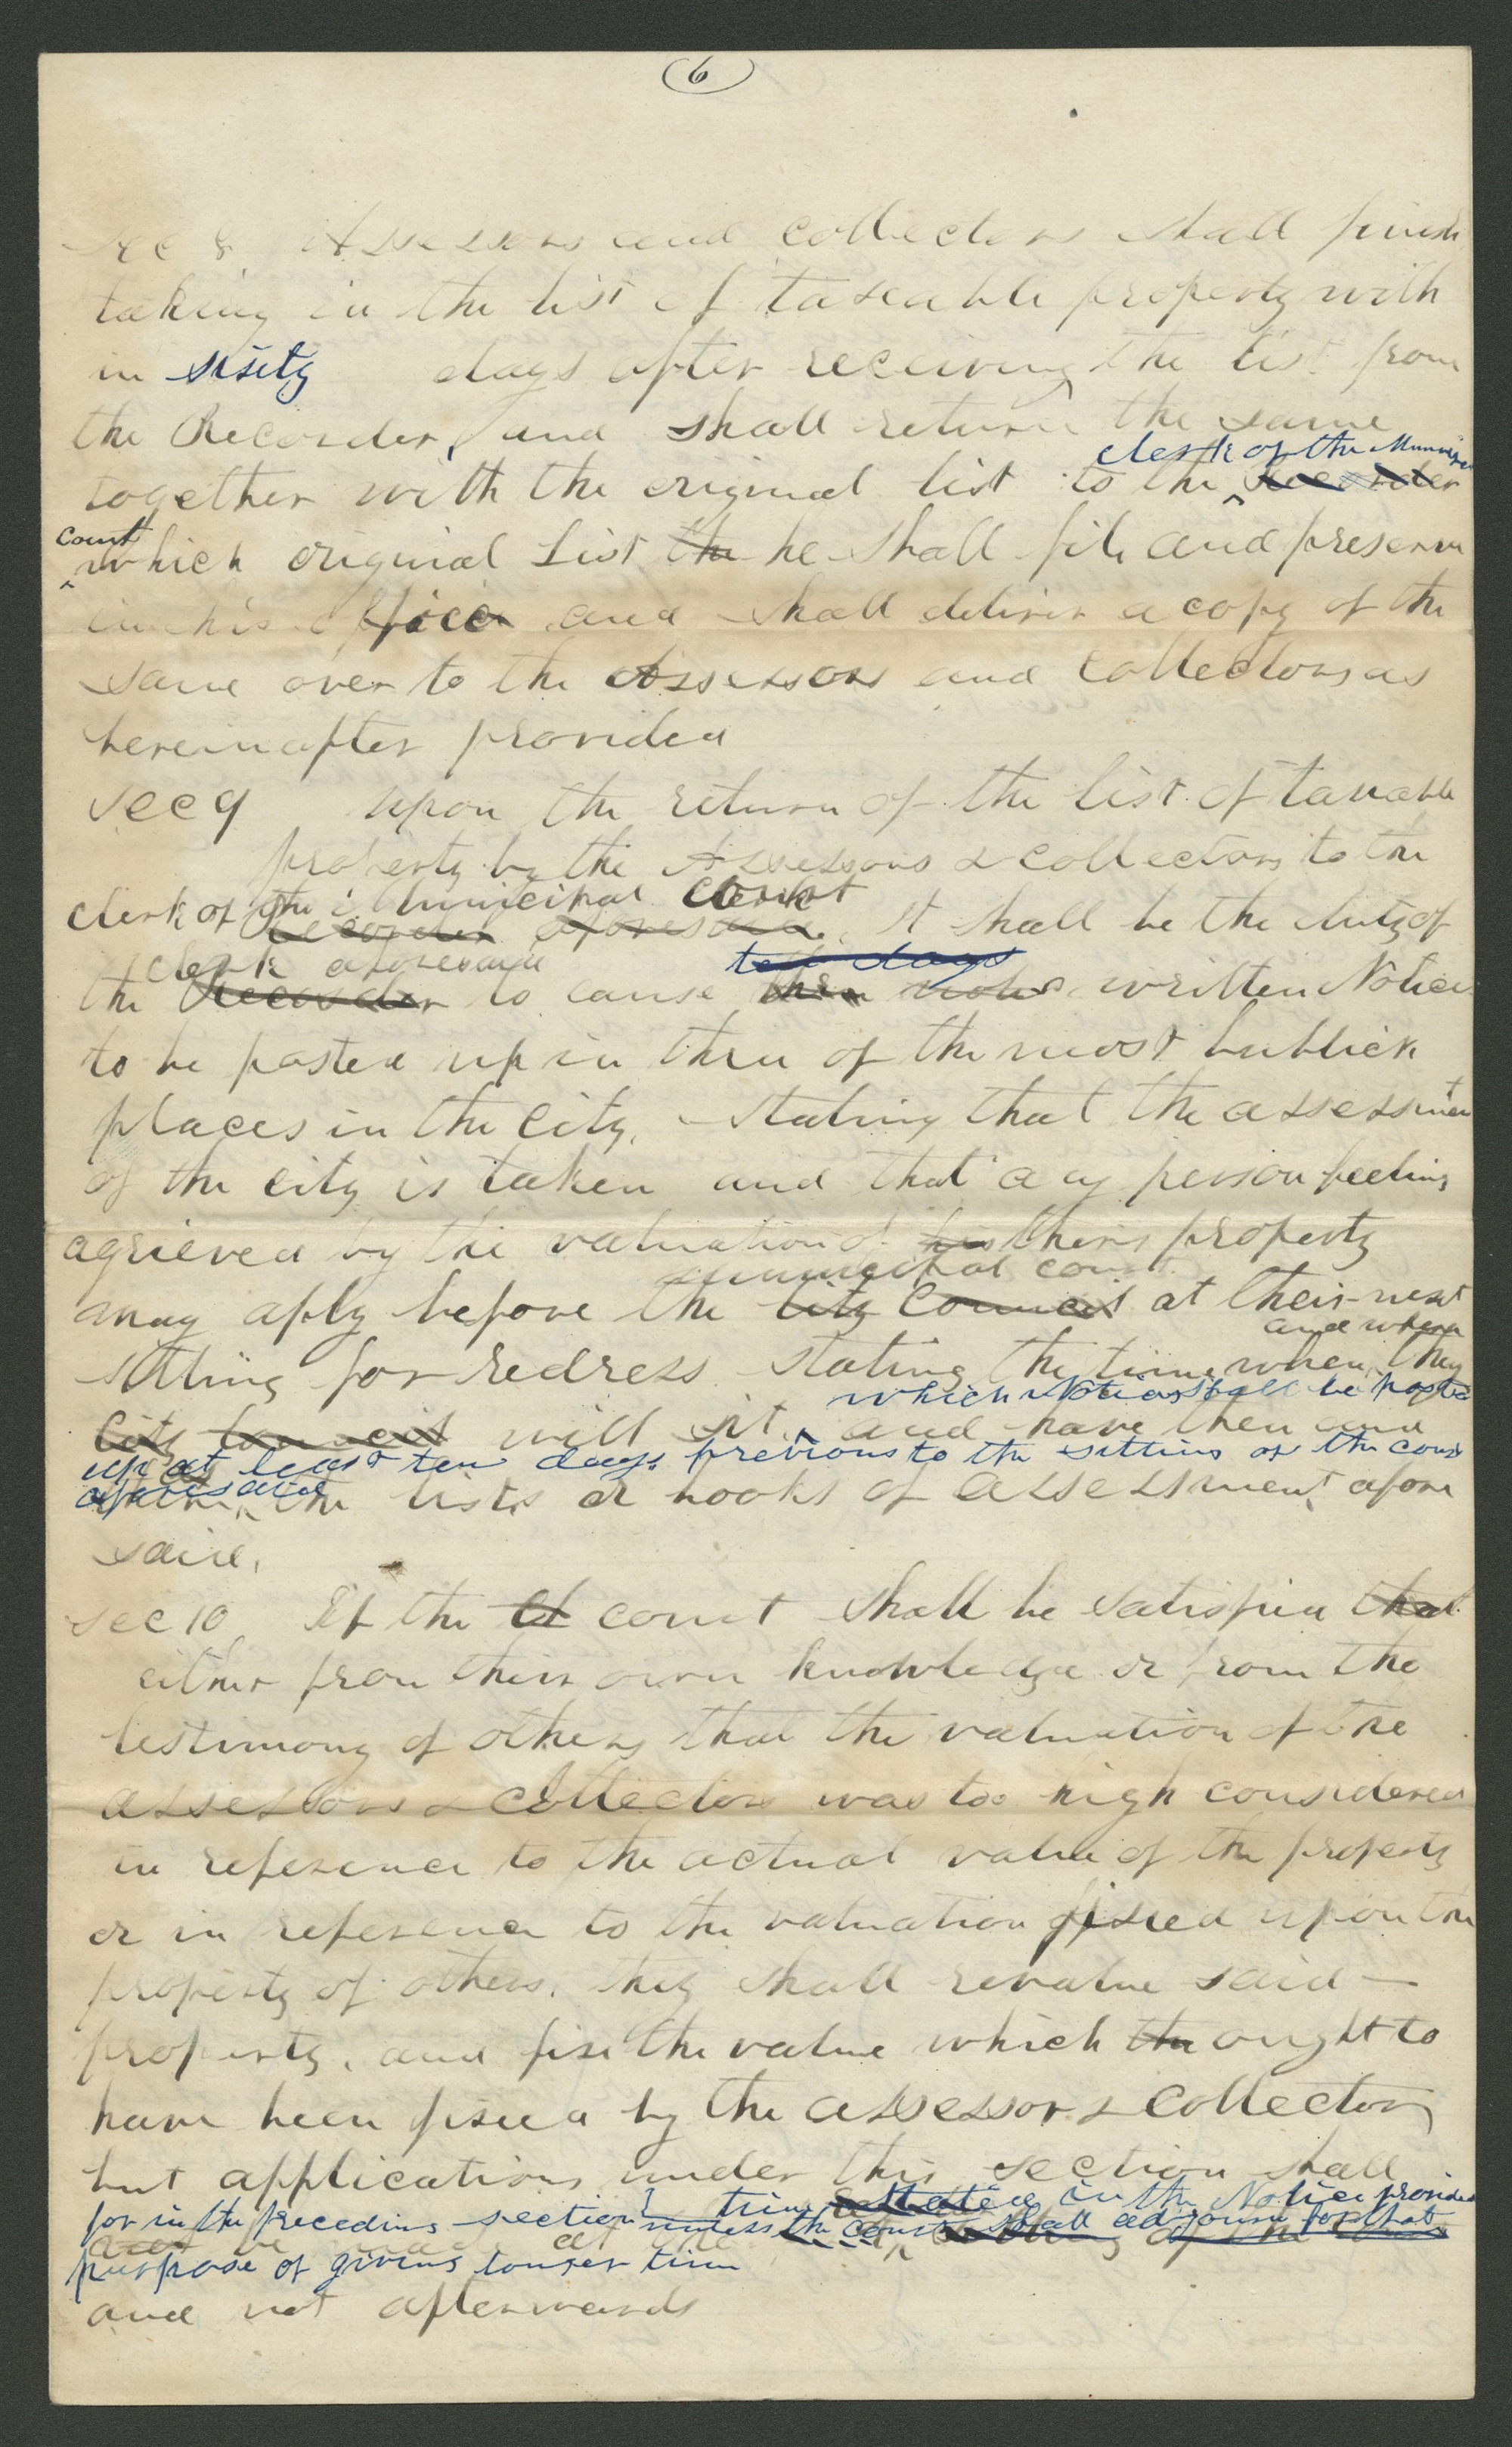 6
Sec 8 Assessors and collectors shall finish
taking in the list of taxeable property with
in sixty days after receiving the list from
the Recorder, and shall return the same
clerk of the Municipal
together with the original list to the Recorder
court
which original List the he shall file and preserve
in his office and shall deliver a copy of the
same over to the Assessors and Collectors as
hereinafter provided
Sec 9 upon the return of the list of taxable
property by the Assessors & collectors to the
clerk of the Municipal Court
Recorder aforesaid. it shall be the duty of
clerk aforesaid ten days
the Recorder to cause written Notices
to be posted up in three of the most publick
places in the city, stating that the assessment
of the city is taken and that any person feeling
agrieved by the valuation of his theirs property
municipal court
may aply before the City Council at their next
and where
sitting for redress stating the time when they
which Notices shall be posted
City Council will sit, and have then and
up at least ten days previous to the sitting of the court
aforesaid
the lists or books of assessment afore
said,
Sec 10 If the court shall be satisfied that
either from their own knowledge or from the
testimony of others that the valuation of the
assessors & collectors was too high considered
in reference to the actual value of the property
or in reference to the valuation fixed upon the
property of others, they shall revalue said
property, and fix the value which the ought to
have been fixed by the assessors & collectors
but applications under this section shall
time stated in the Notice provided
for in the preceding section unless the court shall adjourn for that
be made at the
purpose of giving longer time
and not afterwards